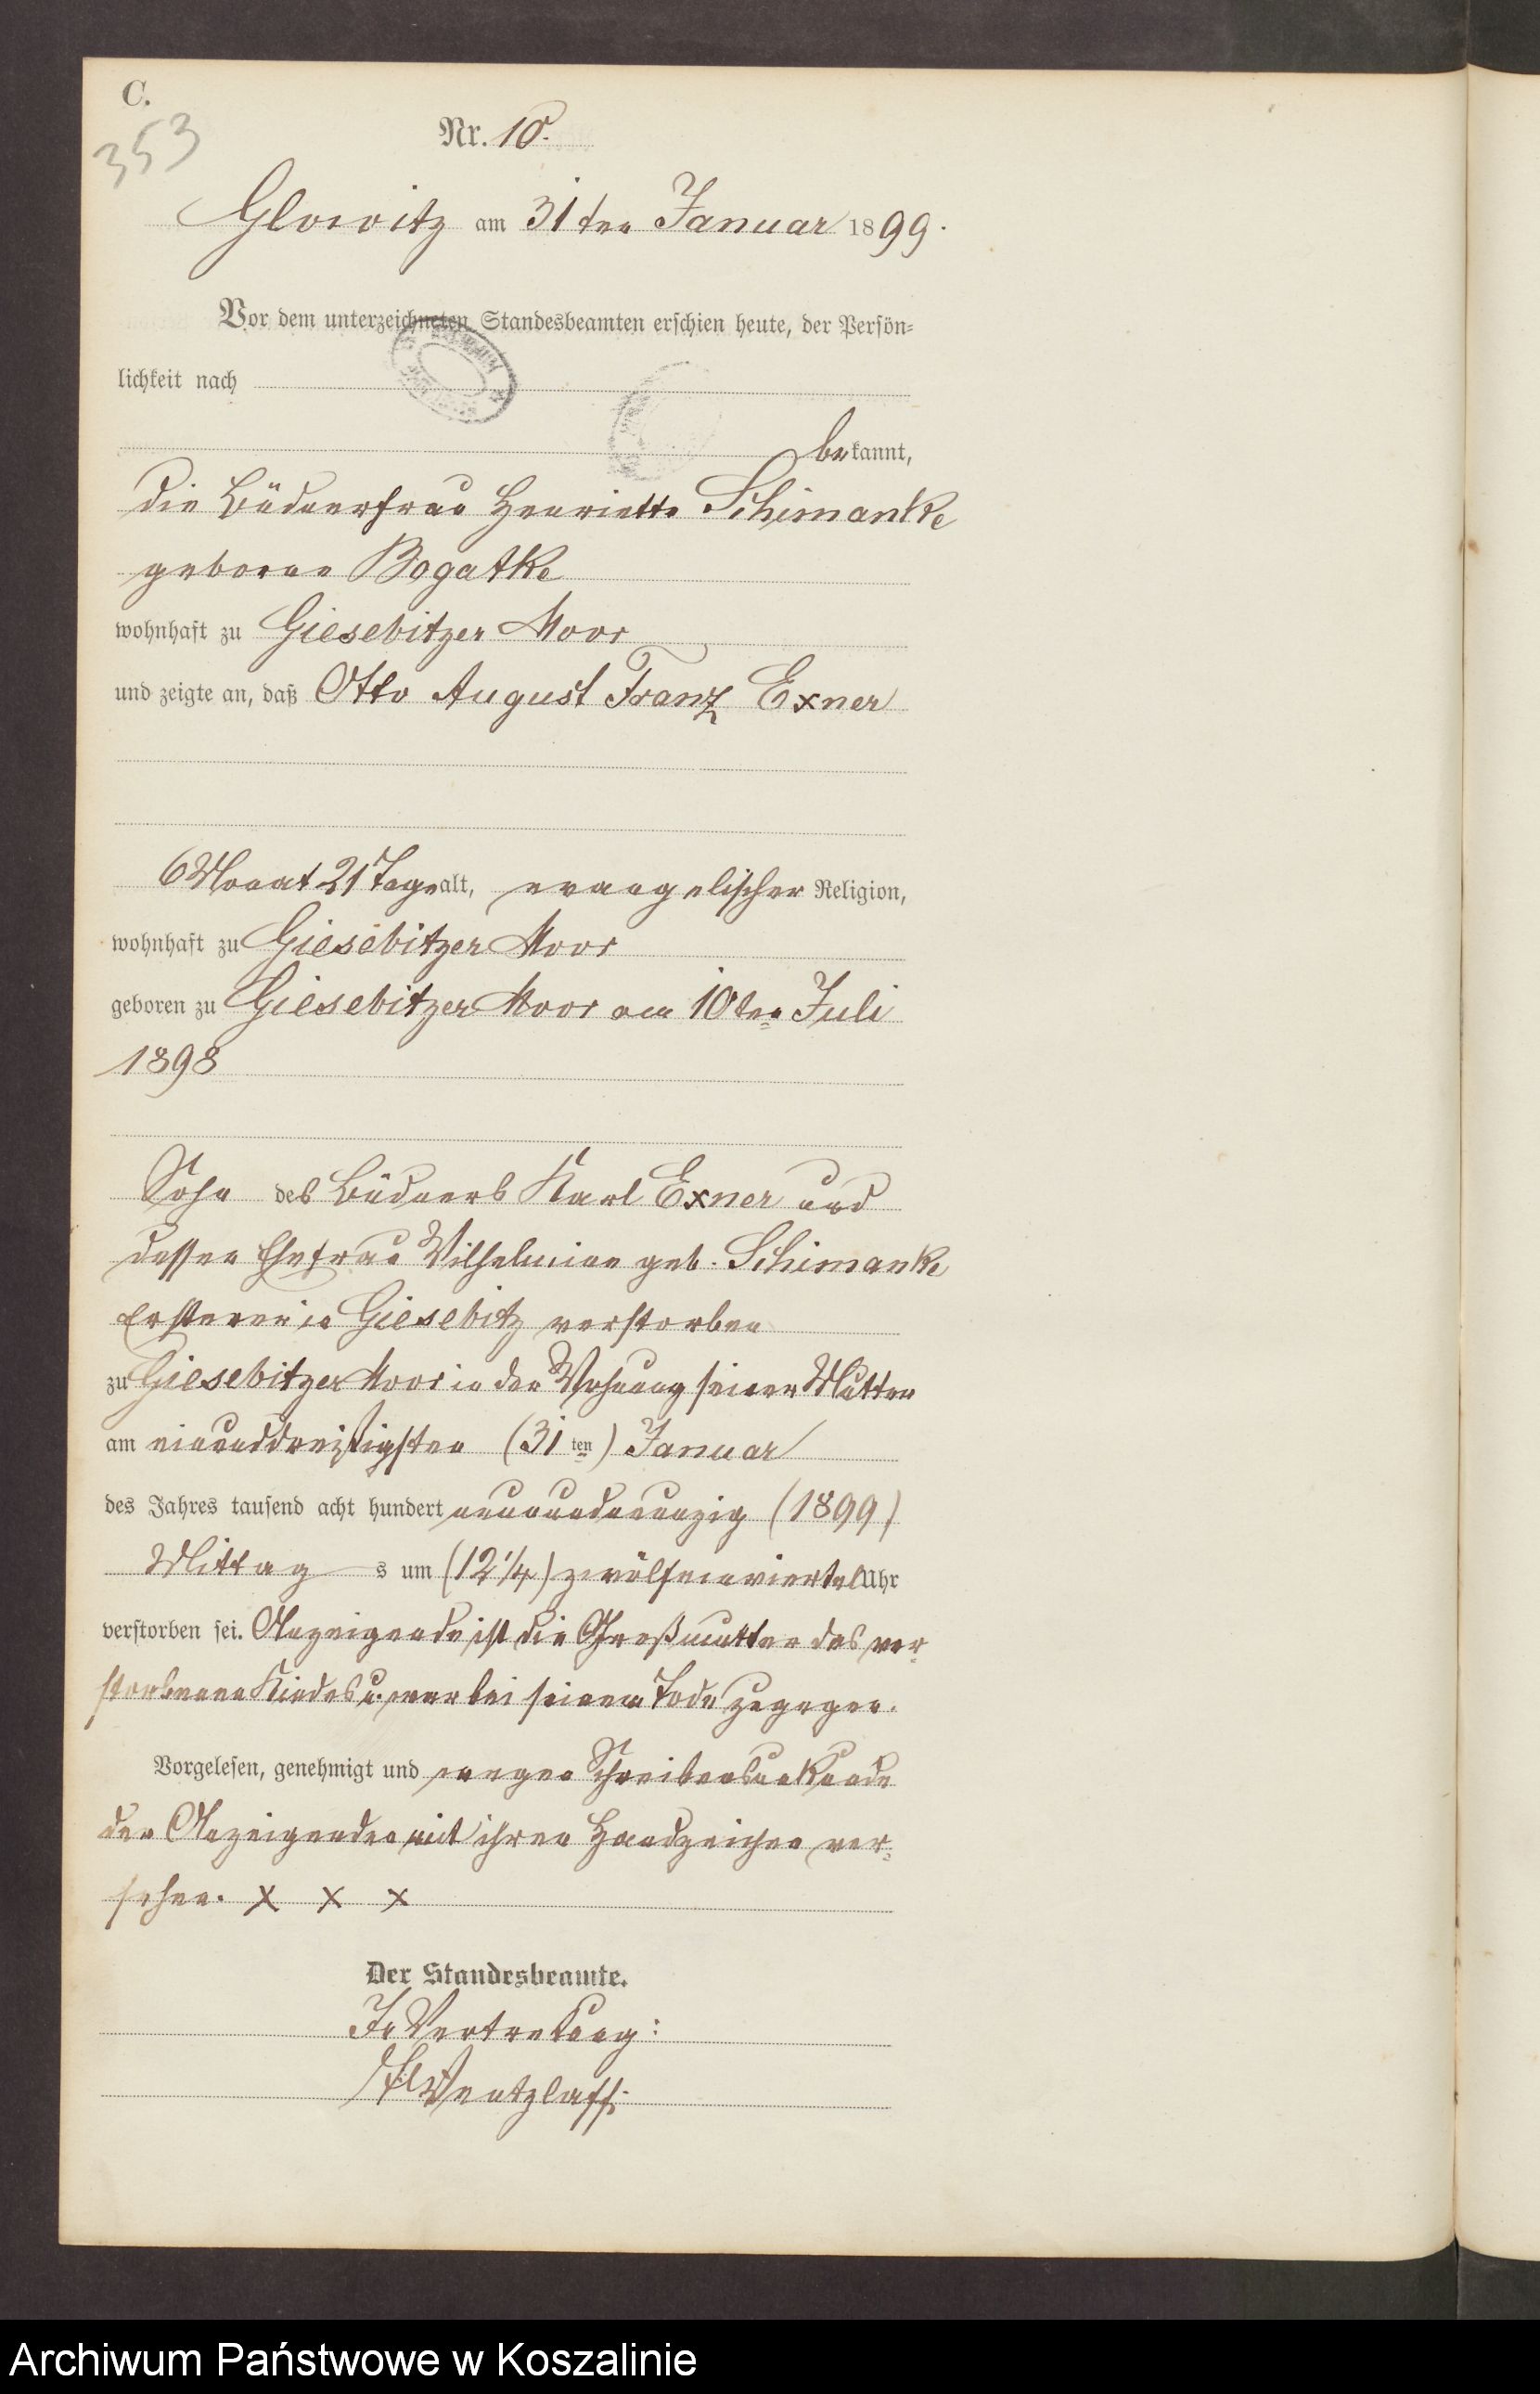 C.
353
Nr. 10.
Glowitz am 31ten Januar 1899.
Vor dem unterzeichneten Standesbeamten erschien heute, der Persön=
lichkeit nach
bekannt,
die Büdnerfrau Henriette Schimanke
geborne Bogatke
wohnhaft zu Giesebitzer Moor
und zeigte an, daß Otto August Franz Exner
6 Monat 21 Tage alt, evangelischer Religion,
wohnhaft zu Giesebitzer Moor
geboren zu Giesebitzer Moor am 10ten Juli
1898
Sohn des Büdners Karl Exner und
dessen Ehefrau Wilhelmine geb. Schimanke
Ersterer in Giesebitz verstorben
zu Giesebitzer Moor in der Wohnung seiner Mutter
am einunddreißigsten (31ten) Januar
des Jahres tausend acht hundert neunundneunzig (1899)
Mittag s um (12 1/4) zwölfeinviertel Uhr
verstorben sei. Anzeigende ist die Großmutter des ver-
storbenen Kindes u. war bei seinem Tode zugegen.
Vorgelesen, genehmigt und wegen Schreibensunkunde
der Anzeigenden mit ihren Handzeichen ver-
sehen. x x x
Der Standesbeamte.
In Vertretung:
Wentzlaff.
Archiwum Państwowe w Koszalinie